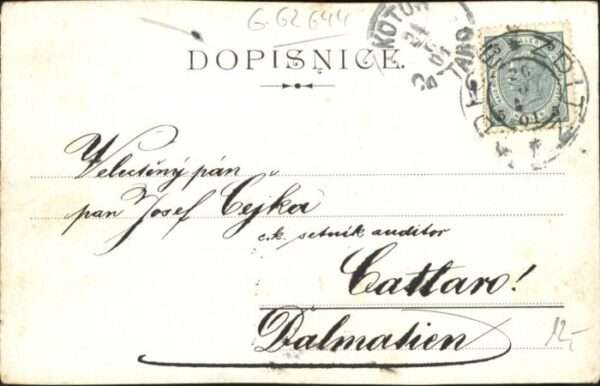 G. G2 644
DOPISNICE.
KOTOR
Veluctěný pán
pan Josef Čejka
c.k. setnik auditor
Cattaro!
Dalmatien
12,-